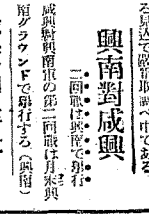 る見込で嚴重取調べ中である
興南對咸興
二回戰は興南で擧行
咸興對興南軍の第二回戰は月末興
南グラウンドで擧行する。(興南)